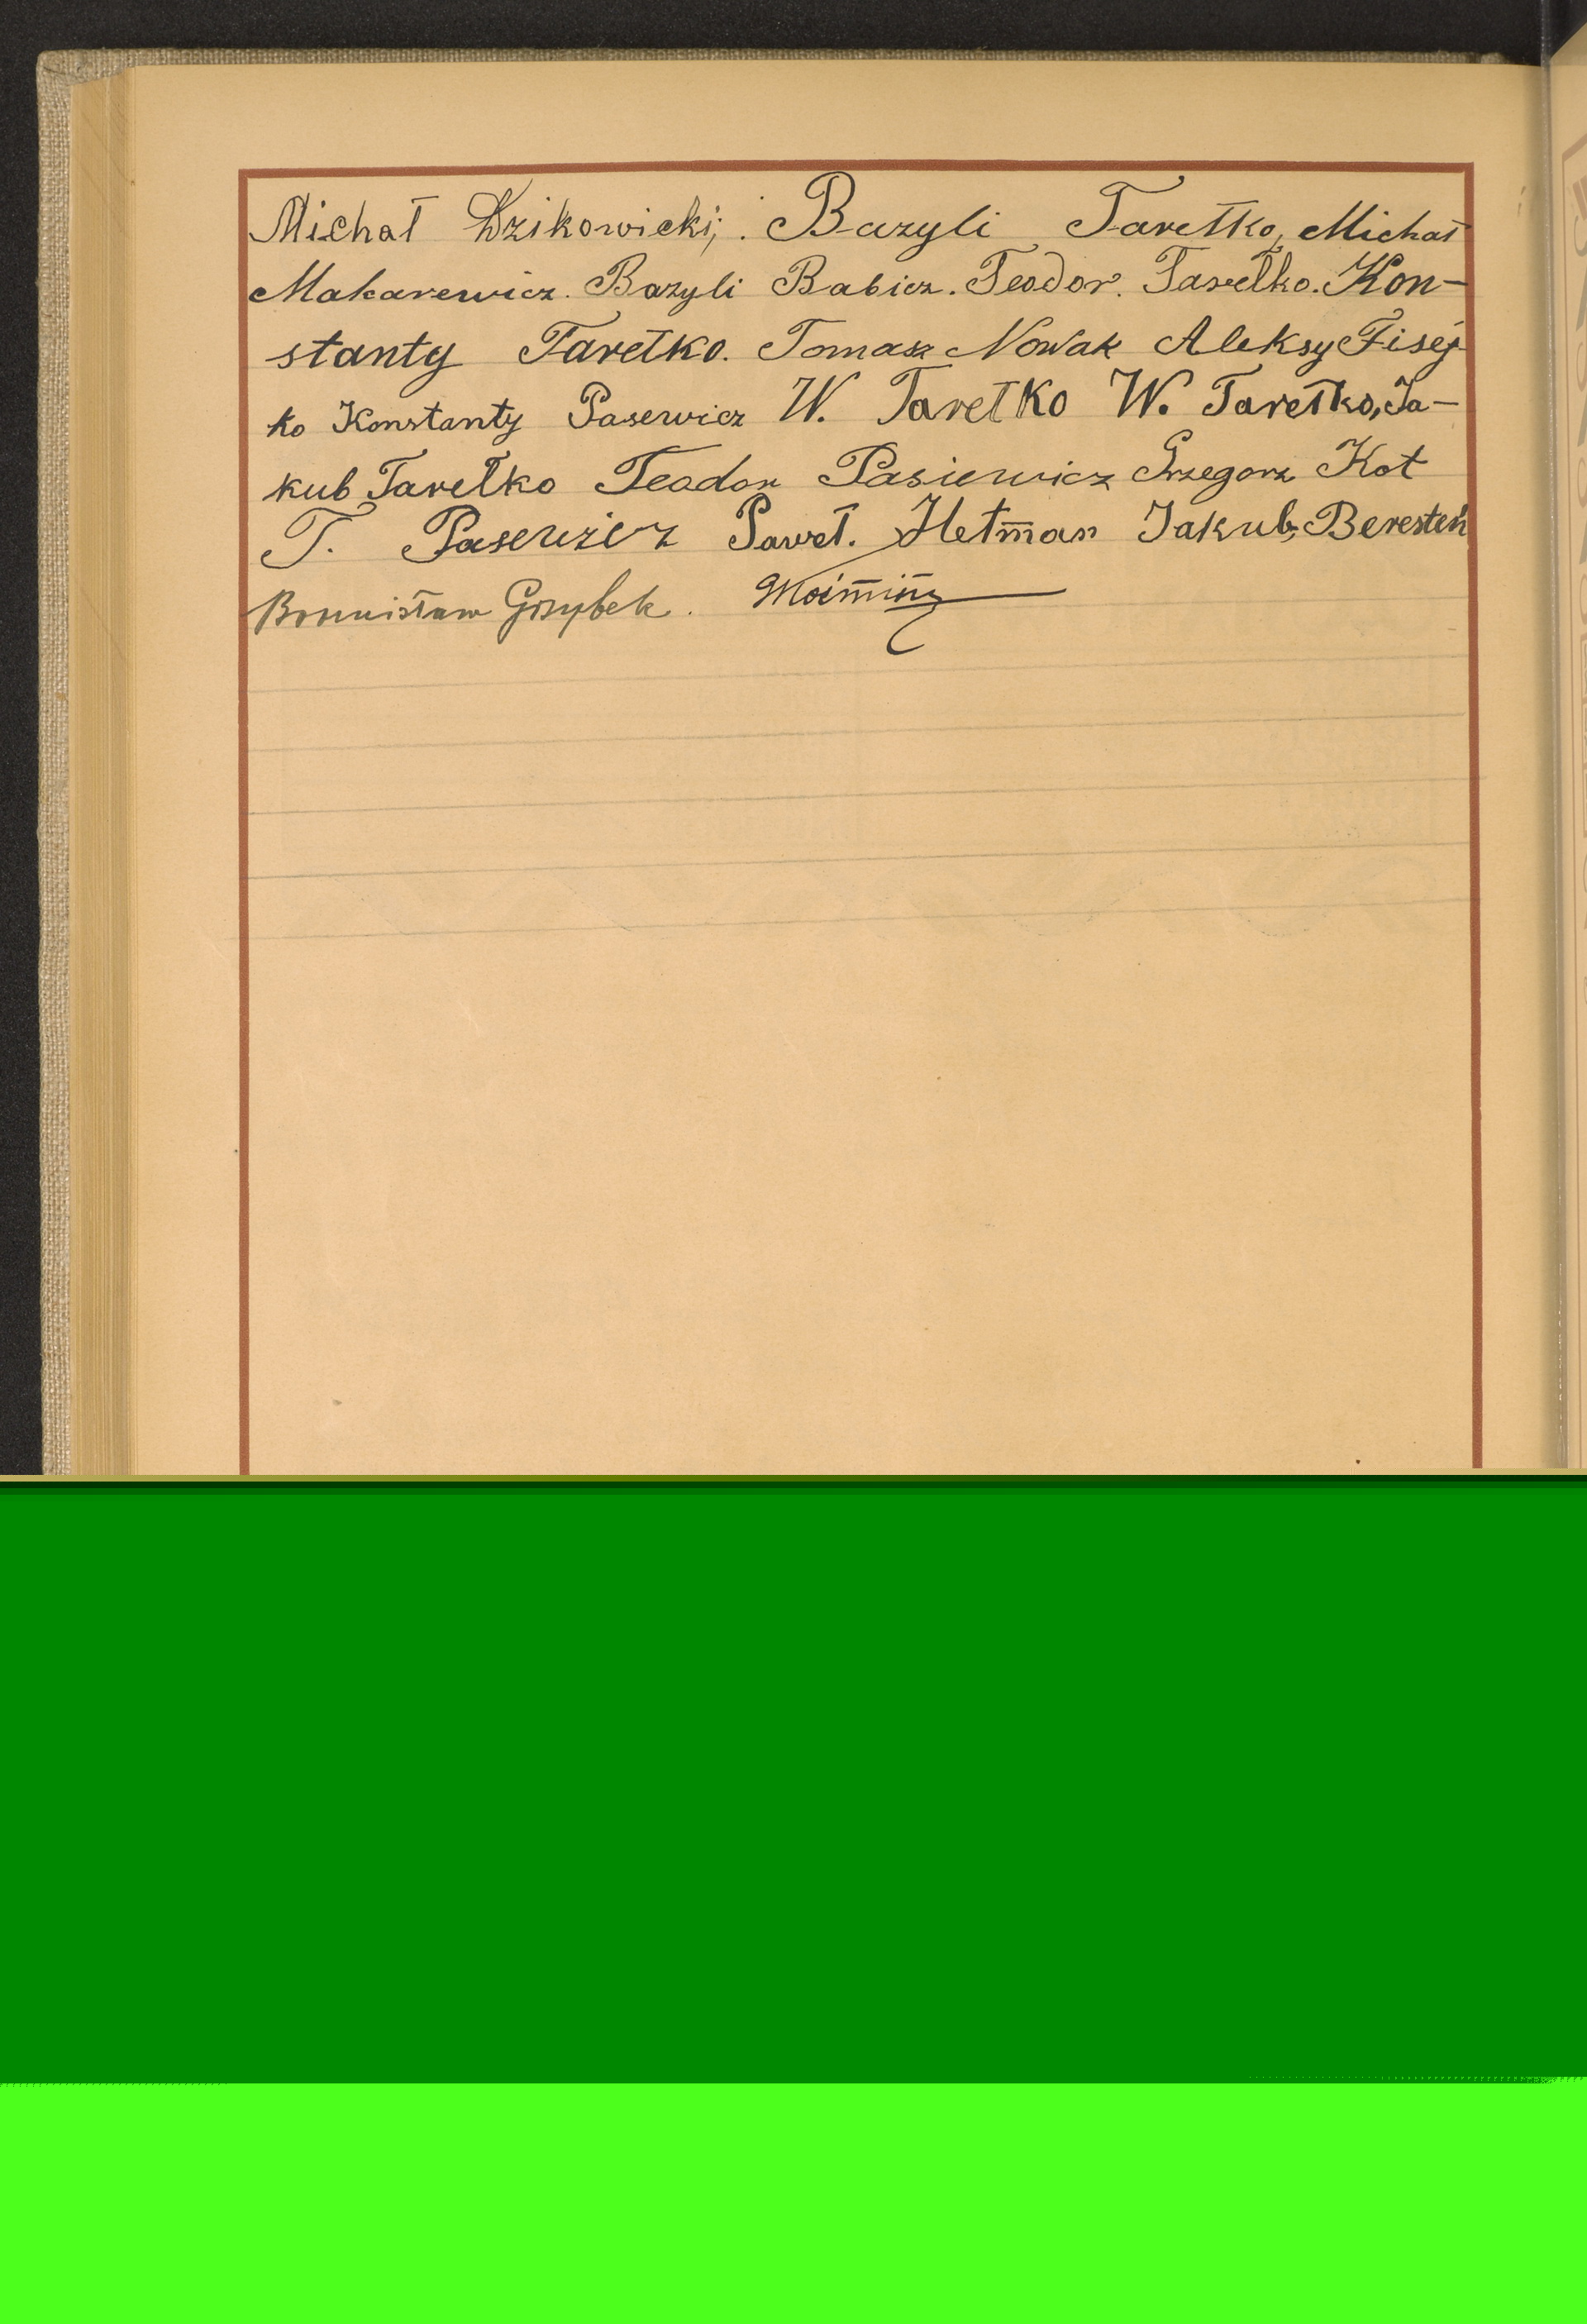 Michał Dzikowicki; . Bazyli Taretko, Michał
Makarewicz. Bazyli Babicz. Teodor. Taretko. Kon-
stanty Taretko. Tomasz Nowak Aleksy Fisej-
ko Konstanty Pasewicz W. Taretko W. Taretko, Ja-
kub Taretko Teodor Pasiewicz Grzegorz Kot
T. Pasewicz Paweł. Hetman Jakub Beresteń
Bronisław Grzybek.